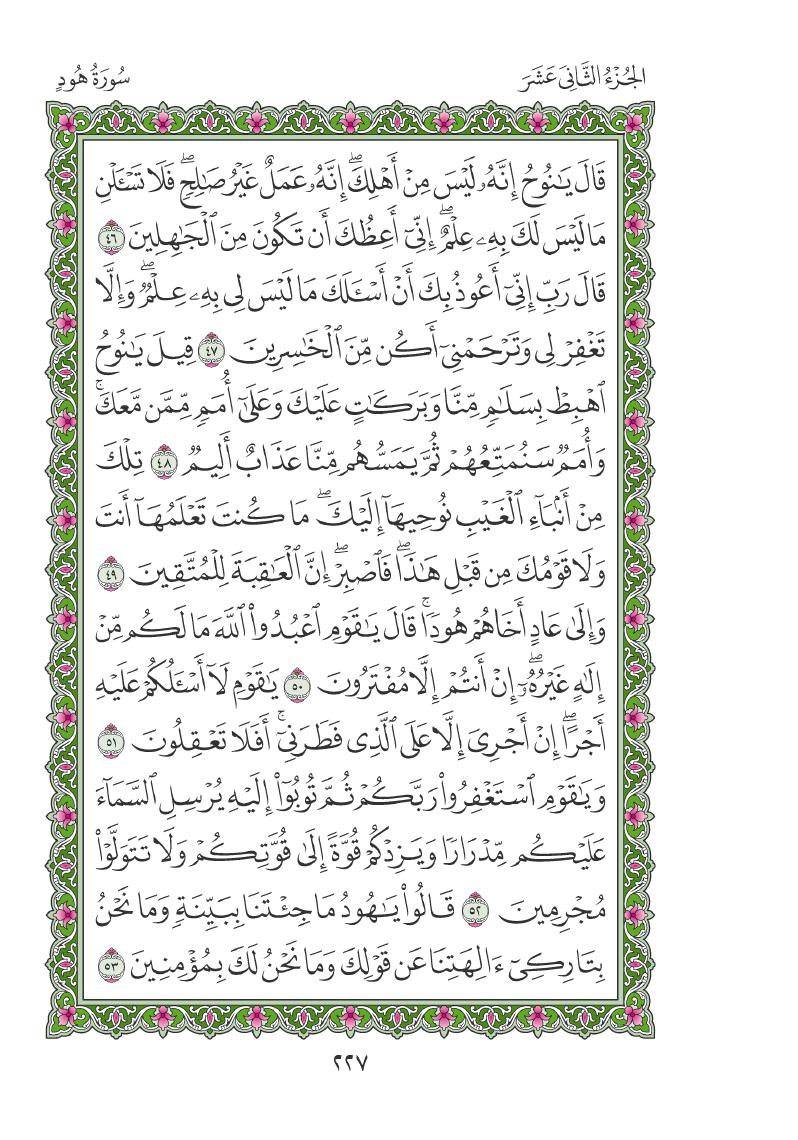 سُورَةُ هُودٍ
الجُزْءُ الثَّانِىَ عَشَرَ
قَالَ يَـٰنُوحُ إِنَّهُۥ لَيْسَ مِنْ أَهْلِكَۖ إِنَّهُۥ عَمَلٌ غَيْرُ صَـٰلِحٍۖ فَلَا تَسْـَٔلْنِ
مَا لَيْسَ لَكَ بِهِۦ عِلْمٌۖ إِنِّىٓ أَعِظُكَ أَن تَكُونَ مِنَ ٱلْجَـٰهِلِينَ ٤٦
قَالَ رَبِّ إِنِّىٓ أَعُوذُ بِكَ أَنْ أَسْـَٔلَكَ مَا لَيْسَ لِى بِهِۦ عِلْمٌۖ وَإِلَّا
تَغْفِرْ لِى وَتَرْحَمْنِىٓ أَكُن مِّنَ ٱلْخَـٰسِرِينَ ٤٧ قِيلَ يَـٰنُوحُ
ٱهْبِطْ بِسَلَـٰمٍ مِّنَّا وَبَرَكَـٰتٍ عَلَيْكَ وَعَلَىٰٓ أُمَمٍ مِّمَّن مَّعَكَۚ
وَأُمَمٌ سَنُمَتِّعُهُمْ ثُمَّ يَمَسُّهُم مِّنَّا عَذَابٌ أَلِيمٌ ٤٨ تِلْكَ
مِنْ أَنۢبَآءِ ٱلْغَيْبِ نُوحِيهَآ إِلَيْكَۖ مَا كُنتَ تَعْلَمُهَآ أَنتَ
وَلَا قَوْمُكَ مِن قَبْلِ هَـٰذَاۖ فَٱصْبِرْۖ إِنَّ ٱلْعَـٰقِبَةَ لِلْمُتَّقِينَ ٤٩
وَإِلَىٰ عَادٍ أَخَاهُمْ هُودًاۚ قَالَ يَـٰقَوْمِ ٱعْبُدُوا۟ ٱللَّهَ مَا لَكُم مِّنْ
إِلَـٰهٍ غَيْرُهُۥٓۖ إِنْ أَنتُمْ إِلَّا مُفْتَرُونَ ٥٠ يَـٰقَوْمِ لَآ أَسْـَٔلُكُمْ عَلَيْهِ
أَجْرًاۖ إِنْ أَجْرِىَ إِلَّا عَلَى ٱلَّذِى فَطَرَنِىٓۚ أَفَلَا تَعْقِلُونَ ٥١
وَيَـٰقَوْمِ ٱسْتَغْفِرُوا۟ رَبَّكُمْ ثُمَّ تُوبُوٓا۟ إِلَيْهِ يُرْسِلِ ٱلسَّمَآءَ
عَلَيْكُم مِّدْرَارًا وَيَزِدْكُمْ قُوَّةً إِلَىٰ قُوَّتِكُمْ وَلَا تَتَوَلَّوْا۟
مُجْرِمِينَ ٥٢ قَالُوا۟ يَـٰهُودُ مَا جِئْتَنَا بِبَيِّنَةٍ وَمَا نَحْنُ
بِتَارِكِىٓ ءَالِهَتِنَا عَن قَوْلِكَ وَمَا نَحْنُ لَكَ بِمُؤْمِنِينَ ٥٣
٢٢٧